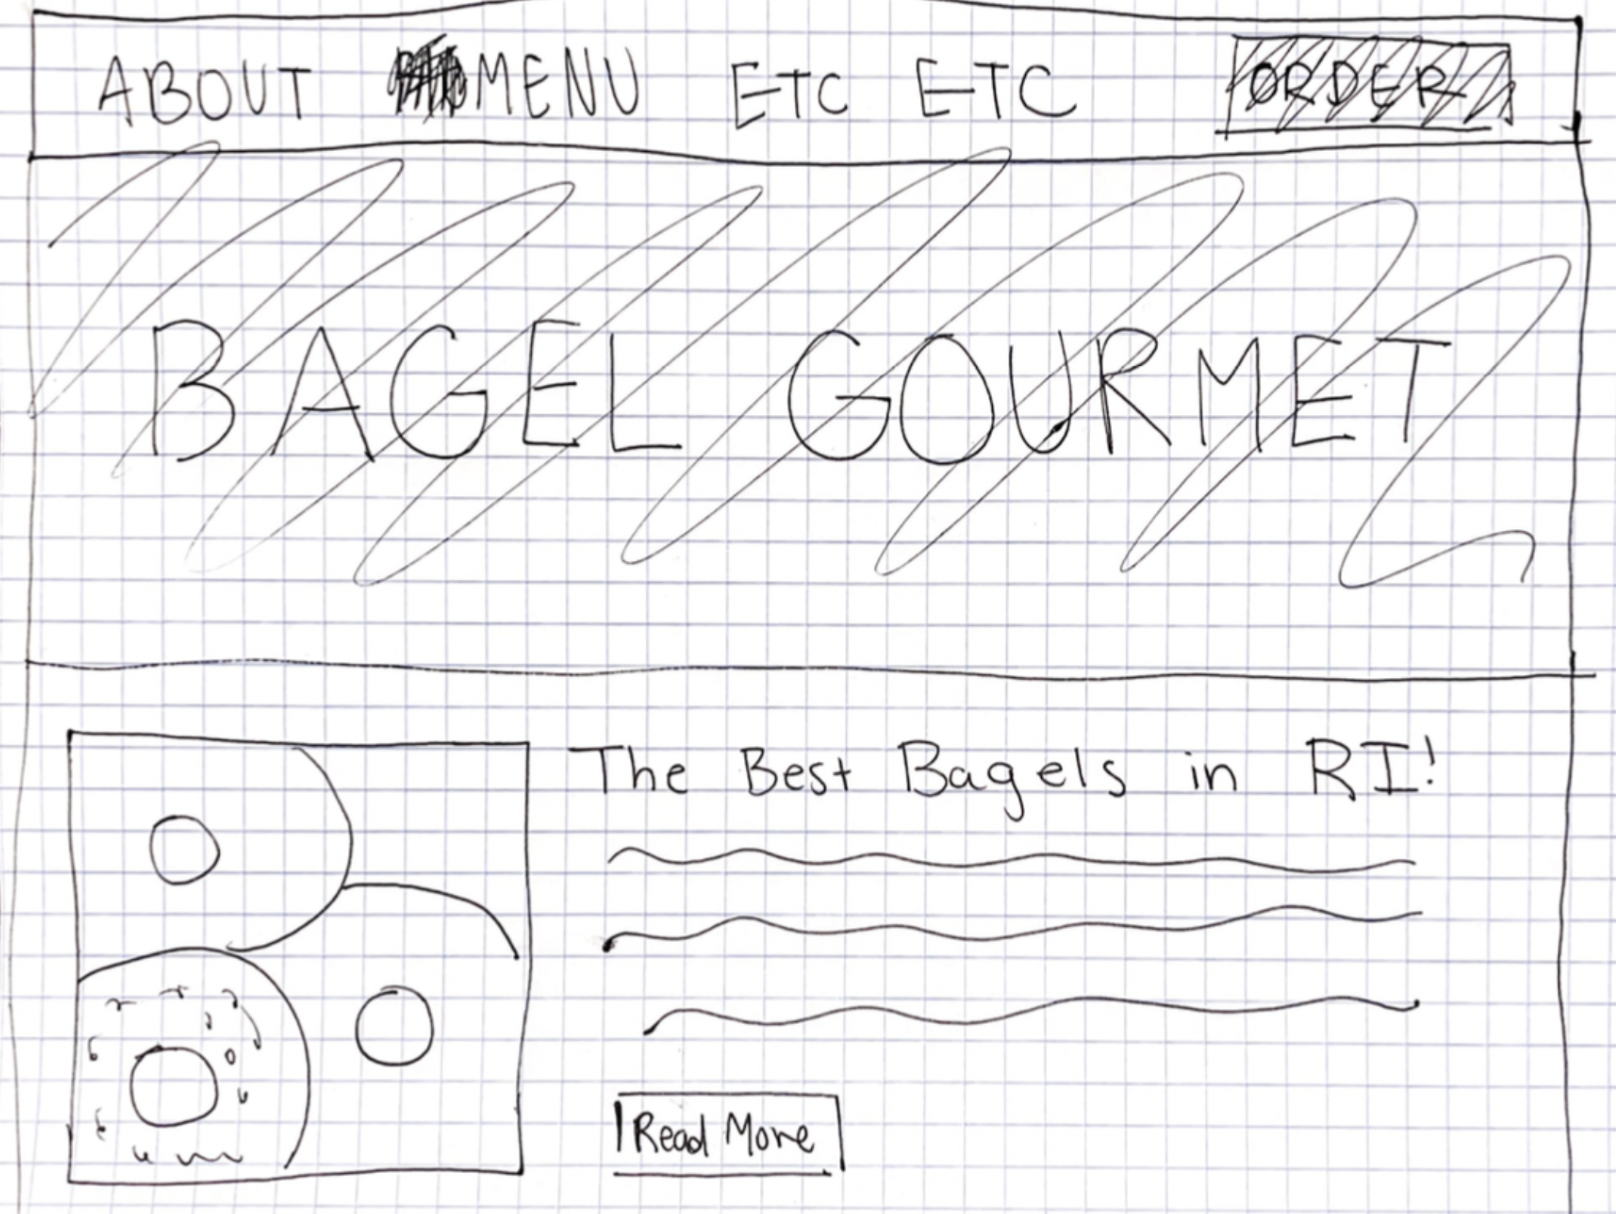 ABOUT MENU ETC ETC ORDER
BAGEL GOURMET
The Best Bagels in RI!
Read More